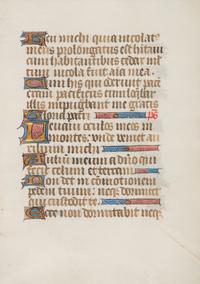 Heu michi quia incolat
meus prolongatus est habitavi
cum habitantibus cedar mul
tum incola fuit aīa mea.
Cum his qui oderunt pace
eram pacificus cum loque
illis inpugnabant me gratis
Gloria patri ps
Levavi oculos meos in
montes. unde veniet au
xilium michi
Auxilium meum a dño. qui
fecit celum et terram
Non det in cōmotionem
pedem tuum. neque dormitet
qui custodit te.
Ecce non dormitabit neq